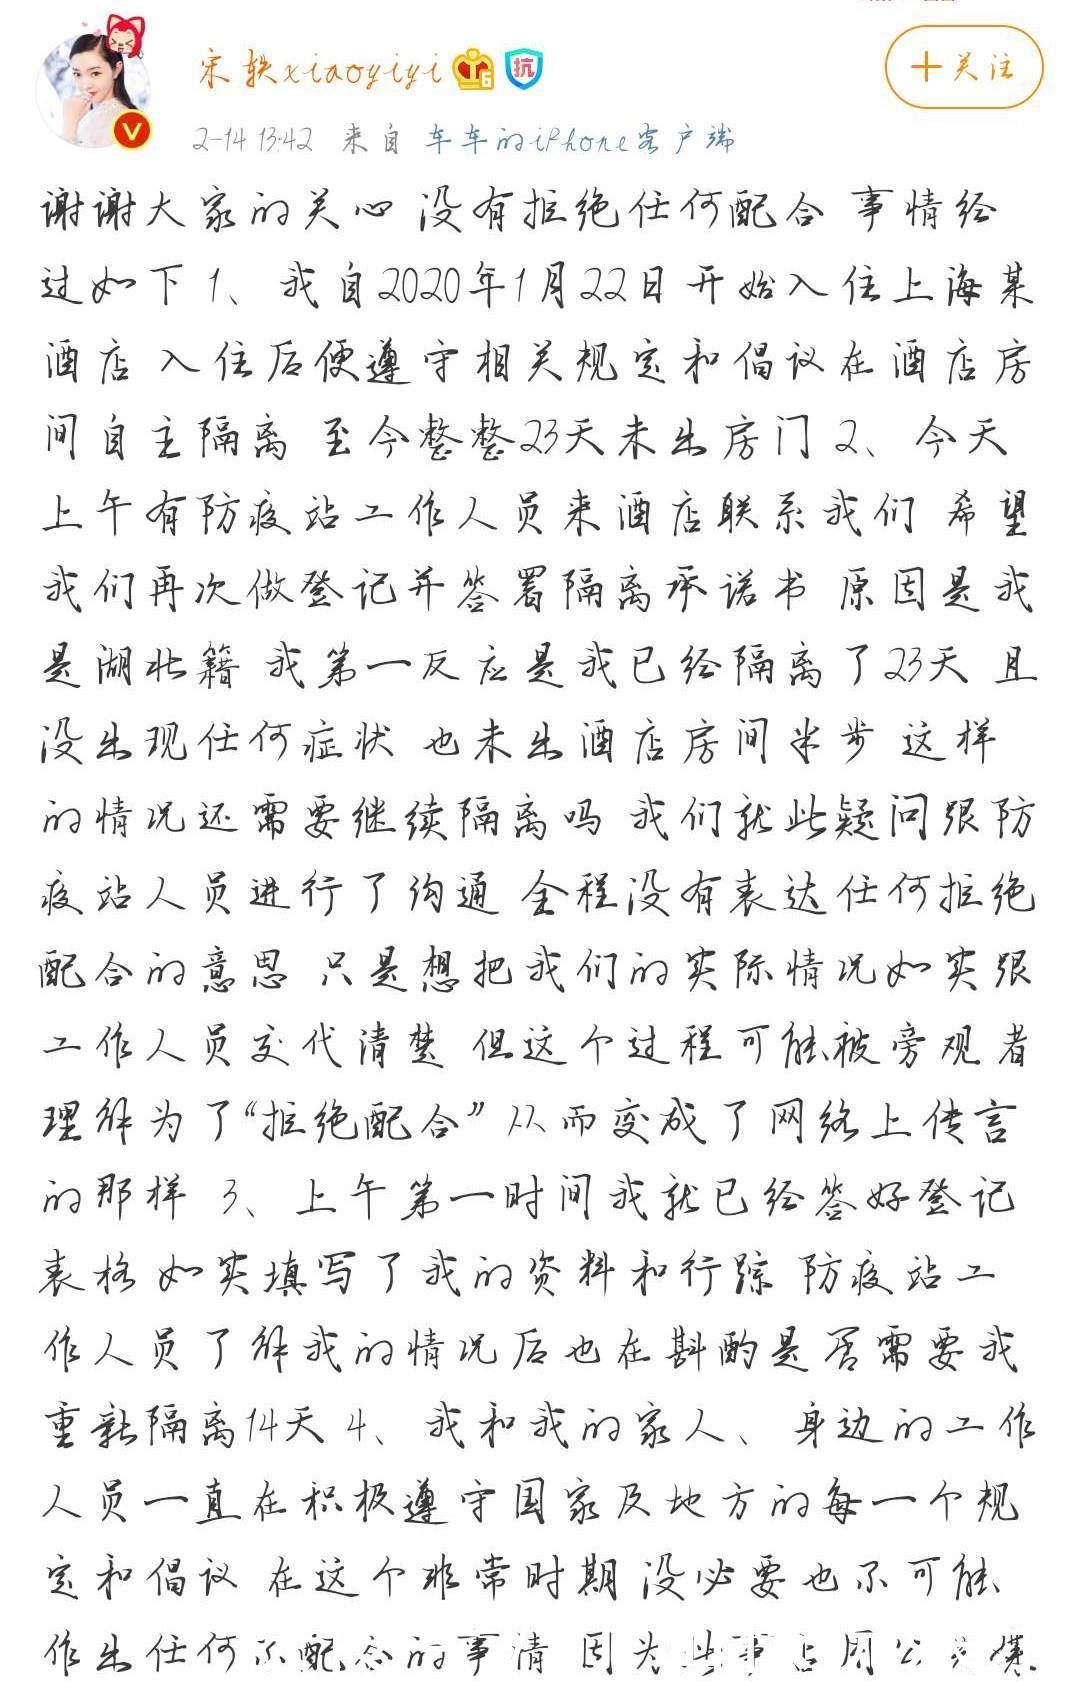 宋轶xiaoyiyi
6
抗
V
+关注
2-14 13:42 来自 车车的iPhone客户端
谢谢大家的关心 没有拒绝任何配合 事情经
过如下 1、我自2020年1月22日开始入住上海某
酒店 入住后便遵守相关规定和倡议在酒店房
间自主隔离 至今整整23天未出房门 2、今天
上午有防疫站工作人员来酒店联系我们 希望
我们再次做登记并签署隔离承诺书 原因是我
是湖北籍 我第一反应是我已经隔离了23天 且
没出现任何症状 也未出酒店房间半步 这样
的情况还需要继续隔离吗 我们就此疑问跟防
疫站人员进行了沟通 全程没有表达任何拒绝
配合的意思 只是想把我们的实际情况如实跟
工作人员交代清楚 但这个过程可能被旁观者
理解为了“拒绝配合” 从而变成了网络上传言
的那样 3、上午第一时间我就已经签好登记
表格 如实填写了我的资料和行踪 防疫站工
作人员了解我的情况后也在斟酌是否需要我
重新隔离14天 4、我和我的家人、身边的工作
人员一直在积极遵守国家及地方的每一个规
定和倡议 在这个非常时期 没必要也不可能
作出任何不配合的事情 因为此事占用公共